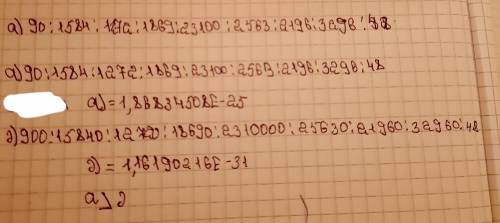 а) 90 : 1584 : 1272 : 1869 : 23100 : 2563 : 2196 : 3298 : 48
а) 90 : 1584 : 1272 : 1869 : 23100 : 2569 : 2196 : 3298 : 48
а) = 1,86834508E-25
д) 900 : 15840 : 12720 : 18690 : 2310000 : 25630 : 21960 : 32960 : 48
д) = 1,16190216E-31
а > д